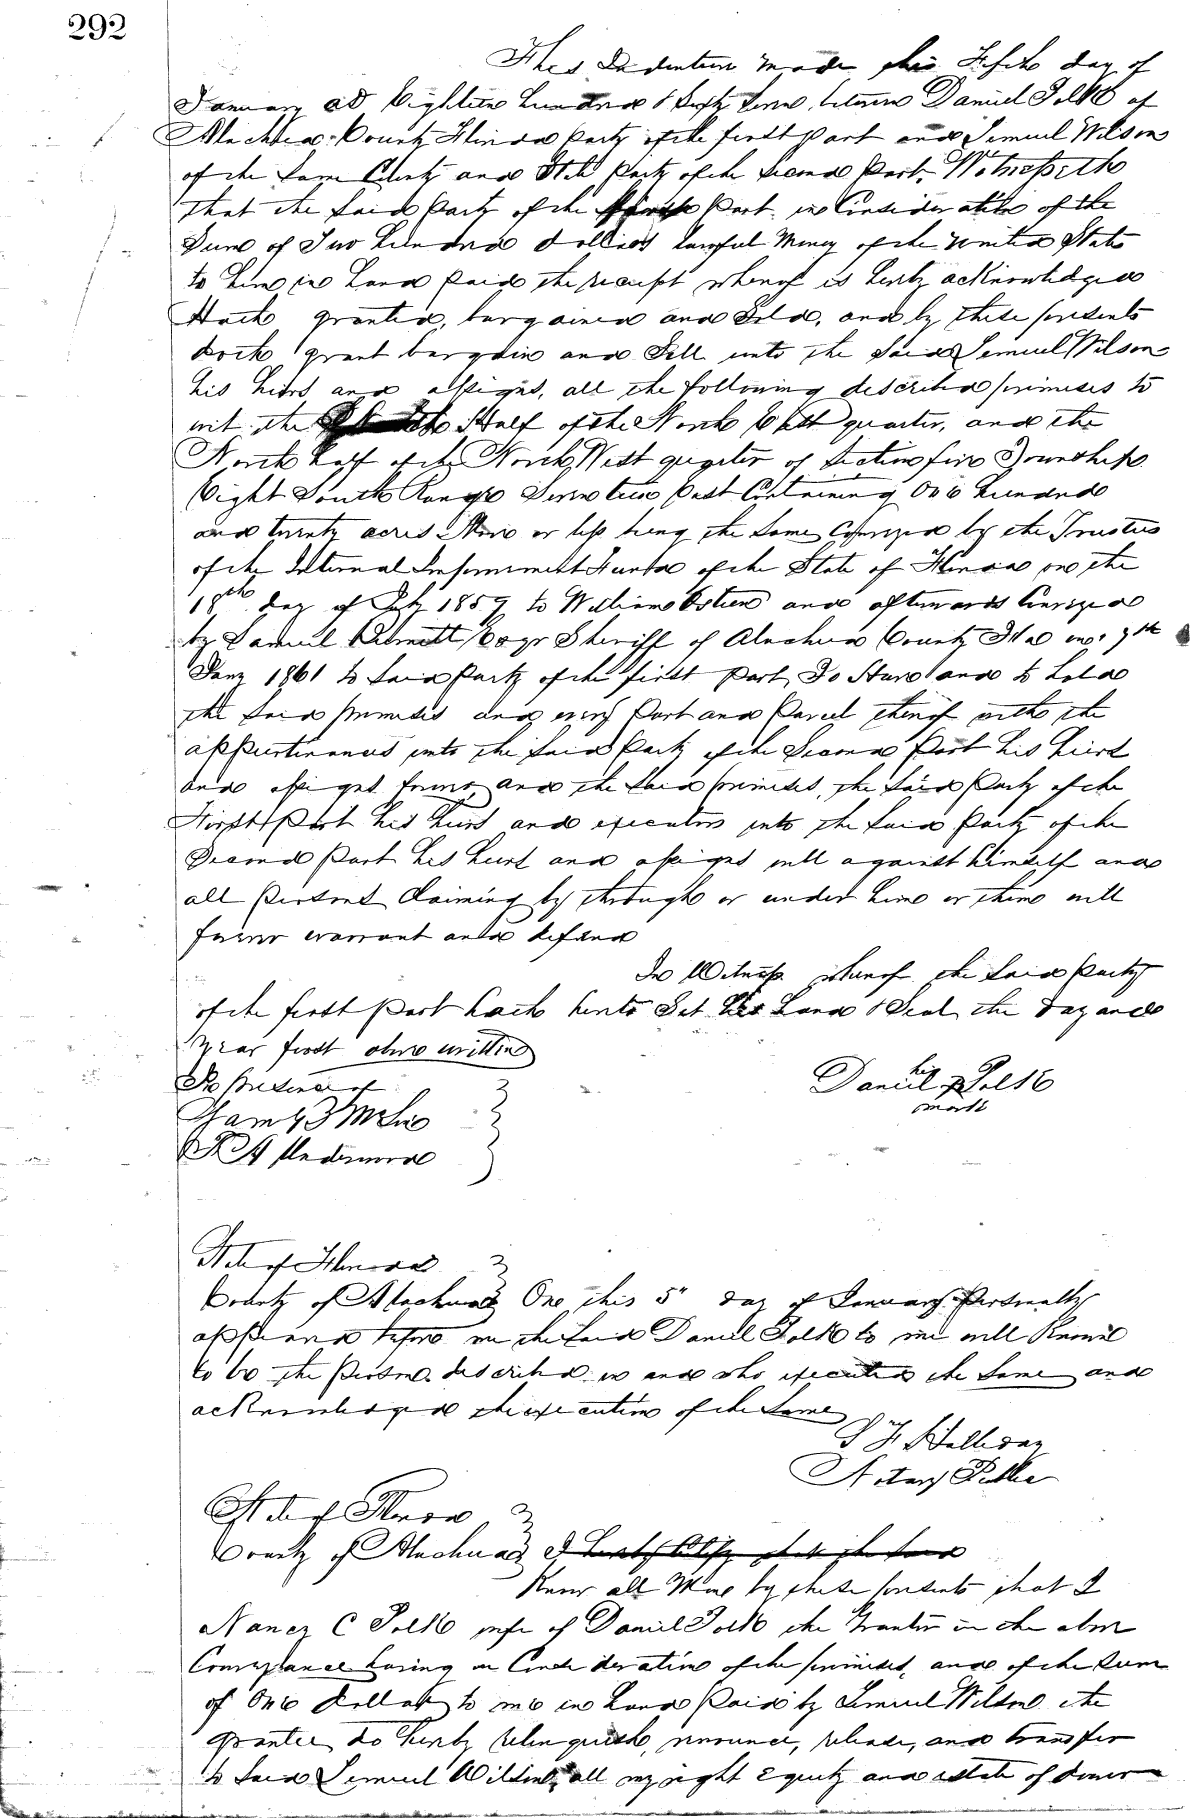 292
This Indenture made this Fifth day of
January AD Eighteen hundred & Sixty Seven between Daniel Polk of
Alachua County Florida party of the first part and Lemuel Wilson
of the Same County and State party of the Second Part. Witnesseth
that the Said Party of the Part in Consideration of the
Sum of Two hundred dollars lawful Money of the United States
to him in hand paid the receipt whereof is hereby acknowledged
Hath granted, bargained and Sold, and by these presents
doth grant bargain and Sell unto the Said Lemuel Wilson
his heirs and assigns, all the following described premises to
wit the Half of the North East quarter, and the
North half of the North West quarter of Section five Township
Eight South Range Seventeen East Containing One hundred
and twenty acres More or less being the Same Conveyed by the Trustees
of the Internal Improvement Fund of the State of Florida on the
18th day of July 1859 to William and afterwards Conveyed
by Samuel Burnett Esqr Sheriff of Alachua County Fla on 7th
Jany 1861 to Said Party of the first part, To Have and to hold
the Said premises and every Part and Parcel thereof with the
appurtenances unto the Said Party of the Second Part his heirs
and assigns forever, and the Said premises, the Said Party of the
First Part his heirs and executors unto the Said Party of the
Second Part his heirs and assigns will against himself and
all Persons Claiming by through or under him or them will
forever warrant and defend
In Witness whereof the Said Party
of the first Part hath hereto Set his hand & Seal the day and
Year first above written
In presence of
Daniel his x mark Polk
State of Florida
County of Alachua On this 5" day of January Personally
appeared before me the Said Daniel Polk to me well Known
to be the person described in and who executed the Same and
acknowledged the execution of the Same
Halliday
Notary Public
State of Florida
County of Alachua I hereby Certify that the Said
Know all Men by these presents that I
Nancy C Polk wife of Daniel Polk the Grantor in the above
Conveyance having in Consideration of the premises, and of the Sum
of One dollar to me in hand Paid by Lemuel Wilson the
grantee do hereby relinquish, renounce, release, and transfer
to Said Lemuel Wilson, all my right Equity and estate of dower